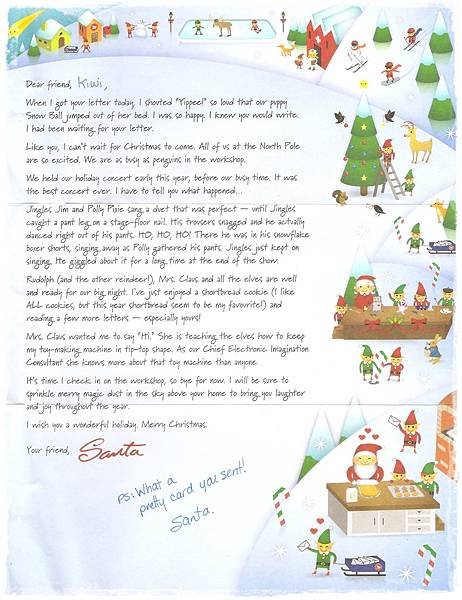 Dear friend, Kiwi,
When I got your letter today, I shouted "Yippee!" so loud that our puppy
Snow Ball jumped out of her bed. I was so happy. I knew you would write.
I had been waiting for your letter.
Like you, I can't wait for Christmas to come. All of us at the North Pole
are so excited. We are as busy as penguins in the workshop.
We held our holiday concert early this year, before our busy time. It was
the best concert ever. I have to tell you what happened...
Jingles Jim and Polly Pixie sang a duet that was perfect — until Jingles
caught a pant leg on a stage-floor nail. His trousers snagged and he actually
danced right out of his pants. HO, HO, HO! There he was in his snowflake
boxer shorts, singing away as Polly gathered his pants. Jingles just kept on
singing. He giggled about it for a long time at the end of the show.
Rudolph (and the other reindeer!), Mrs. Claus and all the elves are well
and ready for our big night. I've just enjoyed a shortbread cookie (I like
ALL cookies, but this year shortbread seem to be my favourite!) and
reading a few more letters — especially yours!
Mrs. Claus wanted me to say "Hi." She is teaching the elves how to keep
my toy-making machine in tip-top shape. As our Chief Electronic Imagination
Consultant she knows more about that toy machine than anyone.
It's time I check in on the workshop, so bye for now. I will be sure to
sprinkle merry magic dust in the sky above your home to bring you laughter
and joy throughout the year.
I wish you a wonderful holiday. Merry Christmas.
Your friend, Santa
PS: What a
pretty card you sent!
Santa.